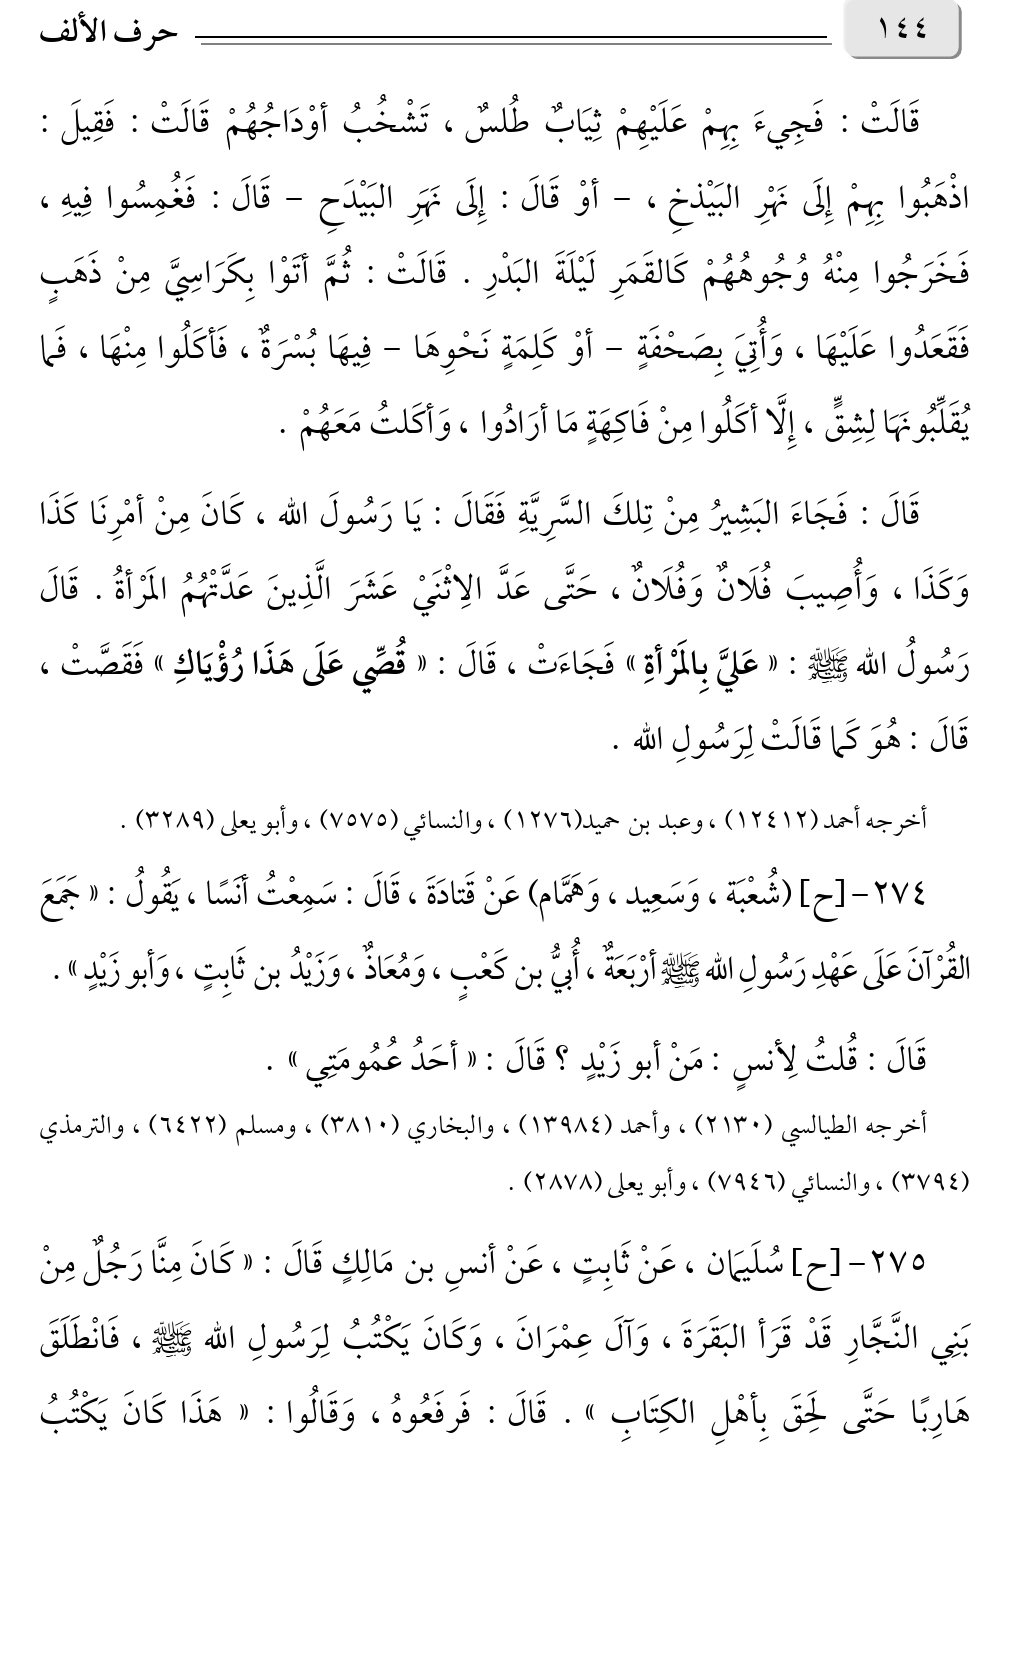 ١٤٤ حرف الألف
قَالَتْ : فَجِيءَ بِهِمْ عَلَيْهِمْ ثِيَابٌ طُلسٌ ، تَشْخُبُ أوْدَاجُهُمْ قَالَتْ : فَقِيلَ :
اذْهَبُوا بِهِمْ إِلَى نَهْرِ البَيْذخِ ، – أوْ قَالَ : إِلَى نَهَرِ البَيْدَحِ – قَالَ : فَغُمِسُوا فِيهِ ،
فَخَرَجُوا مِنْهُ وُجُوهُهُمْ كَالقَمَرِ لَيْلَةَ البَدْرِ . قَالَتْ : ثُمَّ أتَوْا بِكَرَاسِيَّ مِنْ ذَهَبٍ
فَقَعَدُوا عَلَيْهَا ، وَأُتِيَ بِصَحْفَةٍ – أوْ كَلِمَةٍ نَحْوِهَا – فِيهَا بُسْرَةٌ ، فَأكَلُوا مِنْهَا ، فَما
يُقَلِّبُونَهَا لِشِقٍّ ، إِلَّا أكَلُوا مِنْ فَاكِهَةٍ مَا أرَادُوا ، وَأكَلتُ مَعَهُمْ .
قَالَ : فَجَاءَ البَشِيرُ مِنْ تِلكَ السَّرِيَّةِ فَقَالَ : يَا رَسُولَ الله ، كَانَ مِنْ أمْرِنَا كَذَا
وَكَذَا ، وَأُصِيبَ فُلَانٌ وَفُلَانٌ ، حَتَّى عَدَّ الِاثْنَيْ عَشَرَ الَّذِينَ عَدَّتْهُمُ المَرْأةُ . قَالَ
رَسُولُ الله ﷺ : « عَليَّ بِالمَرْأةِ » فَجَاءَتْ ، قَالَ : « قُصِّي عَلَى هَذَا رُؤْيَاكِ » فَقَصَّتْ ،
قَالَ : هُوَ كَما قَالَتْ لِرَسُولِ الله .
أخرجه أحمد (١٢٤١٢) ، وعبد بن حميد(١٢٧٦) ، والنسائي (٧٥٧٥) ، وأبو يعلى (٣٢٨٩) .
٢٧٤ – [ح] (شُعْبَة ، وَسَعِيد ، وَهَمَّام) عَنْ قَتادَةَ ، قَالَ : سَمِعْتُ أنَسًا ، يَقُولُ : « جَمَعَ
القُرْآنَ عَلَى عَهْدِ رَسُولِ الله ﷺ أرْبَعَةٌ ، أُبيُّ بن كَعْبٍ ، وَمُعَاذٌ ، وَزَيْدُ بن ثَابِتٍ ، وَأبو زَيْدٍ » .
قَالَ : قُلتُ لِأنسٍ : مَنْ أبو زَيْدٍ ؟ قَالَ : « أحَدُ عُمُومَتِي » .
أخرجه الطيالسي (٢١٣٠) ، وأحمد (١٣٩٨٤) ، والبخاري (٣٨١٠) ، ومسلم (٦٤٢٢) ، والترمذي
(٣٧٩٤) ، والنسائي (٧٩٤٦) ، وأبو يعلى (٢٨٧٨) .
٢٧٥ – [ح] سُلَيمَان ، عَنْ ثَابِتٍ ، عَنْ أنسِ بن مَالِكٍ قَالَ : « كَانَ مِنَّا رَجُلٌ مِنْ
بَنِي النَّجَّارِ قَدْ قَرَأ البَقَرَةَ ، وَآلَ عِمْرَانَ ، وَكَانَ يَكْتُبُ لِرَسُولِ الله ﷺ ، فَانْطَلَقَ
هَارِبًا حَتَّى لَحِقَ بِأهْلِ الكِتَابِ » . قَالَ : فَرفَعُوهُ ، وَقَالُوا : « هَذَا كَانَ يَكْتُبُ